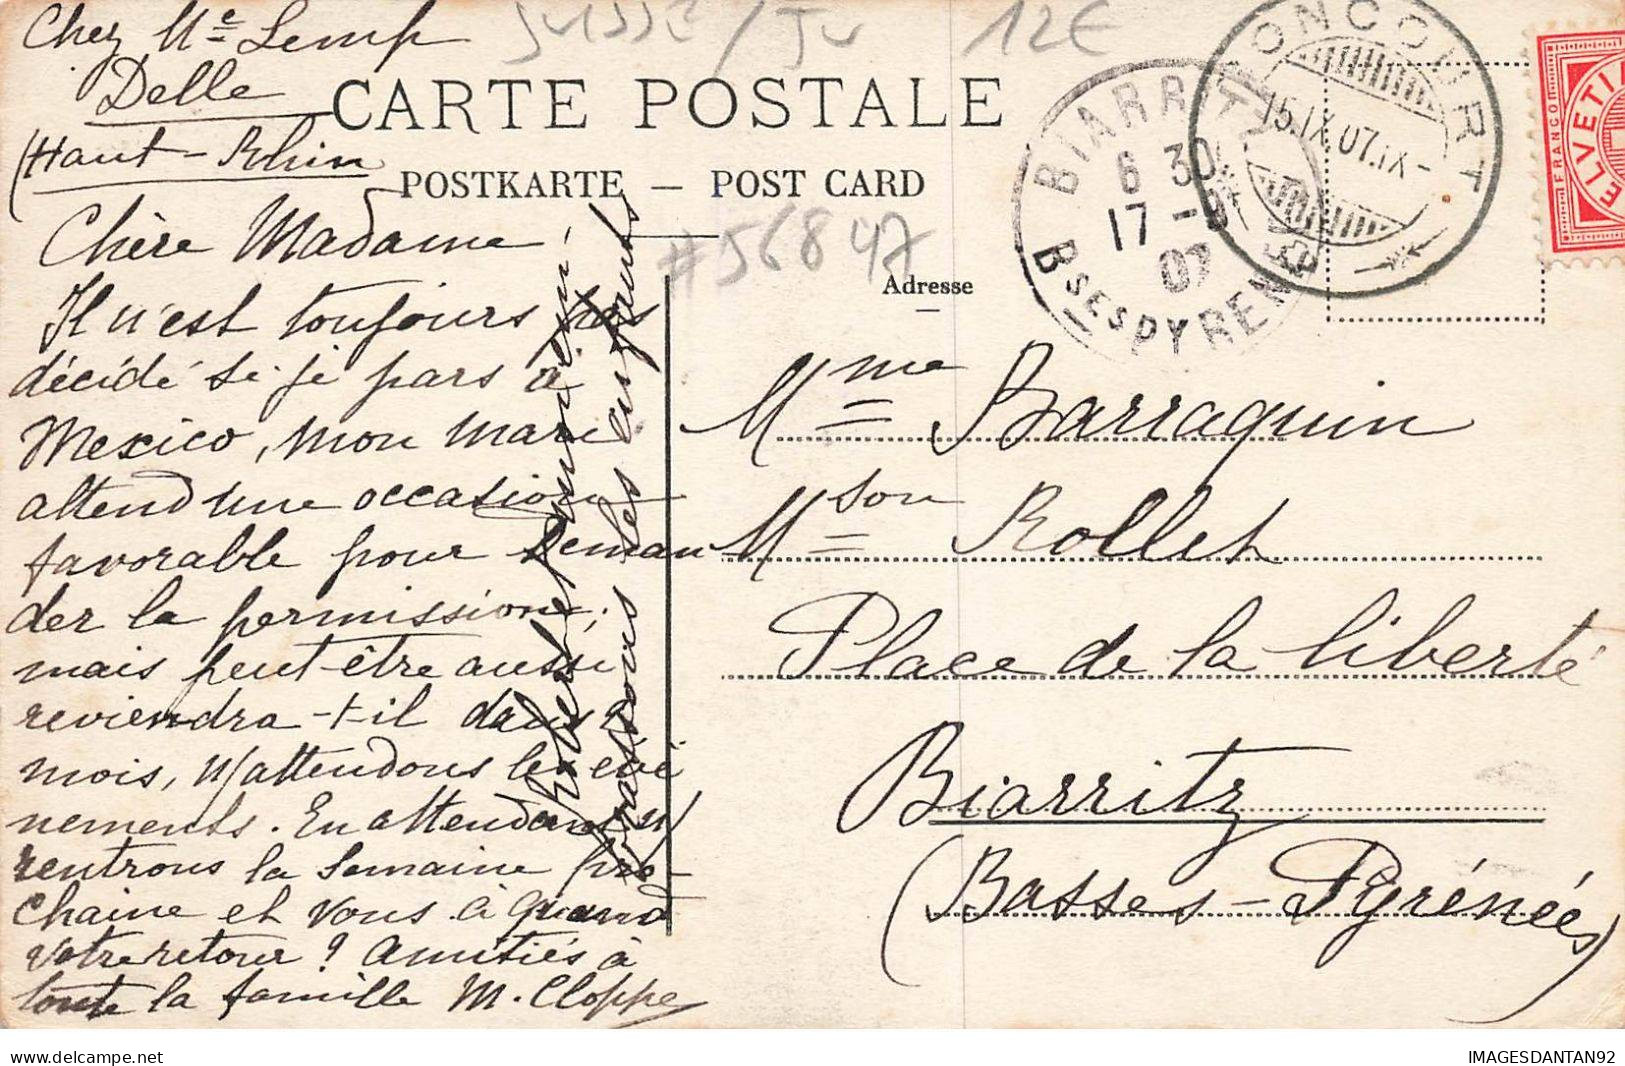 Chez Me Lemp
Delle
(Haut-Rhin
SUISSE / JU 12€
CARTE POSTALE
POSTKARTE — POST CARD
#56847
Adresse
BIARRITZ
6 30
17 -9
07
BSES PYRENEES
BONCOURT
15.IX.07.IX-
FRANCO
HELVETIA
Chère Madame,
Il n'est toujours pas
décidé si je pars à
Mexico, mon mari
attend une occasion
favorable pour deman
der la permission;
mais peut-être aussi
reviendra-t-il dans 2
mois, n/attendons les évé
nements. En attendant n/
rentrons la semaine pro-
chaine et vous à quand
votre retour? Amitiés à
toute la famille M. Cloppe
embrassons les enfants
Mme Barraquin
Mson Rollet
Place de la liberté
Biarritz
(Basses-Pyrénées)
IMAGESDANTAN92